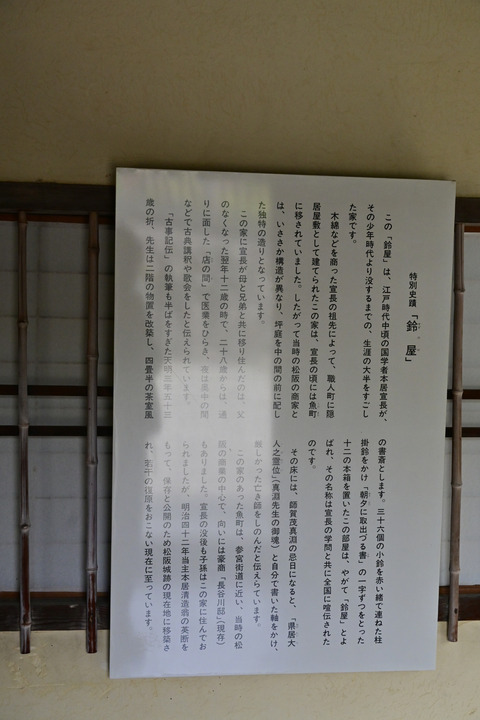 特別史蹟「鈴屋」
この「鈴屋」は、江戸時代中頃の国学者本居宣長が、
その少年時代より没するまでの、生涯の大半をすごし
た家です。
木綿などを商った宣長の祖先によって、職人町に隠
居屋敷として建てられたこの家は、宣長の頃には魚町
に移されていました。したがって当時の松阪の商家と
は、いささか構造が異なり、坪庭を中の間の前に配し
た独特の造りとなっています。
この家に宣長が母と兄弟と共に移り住んだのは、父
のなくなった翌年十二歳の時で、二十八歳からは、通
りに面した「店の間」で医業をひらき、夜は奥中の間
などで古典講釈や歌会をしたと伝えられています。
「古事記伝」の執筆も半ばをすぎた天明三年五十三
歳の折、先生は二階の物置を改築し、四畳半の茶室風
の書斎とします。三十六個の小鈴を赤い緒で連ねた柱
掛鈴をかけ「朝夕に取出づる書」の一字ずつをとった
十二の本箱を置いたこの部屋は、やがて「鈴屋」とよ
ばれ、その名称は宣長の学問と共に全国に喧伝された
のです。
その床には、師賀茂真淵の忌日になると、「県居大
人之霊位」(真淵先生の御魂)と自分で書いた軸をかけ、
厳しかった亡き師をしのんだと伝えらています。
この家のあった魚町は、参宮街道に近い、当時の松
阪の商業の中心で、向いには豪商「長谷川邸」(現存)
もありました。宣長の没後も子孫はこの家に住んでお
られましたが、明治四十二年当主本居清造翁の英断を
もって、保存と公開のため松阪城跡の現在地に移築さ
れ、若干の復原をおこない現在に至っています。